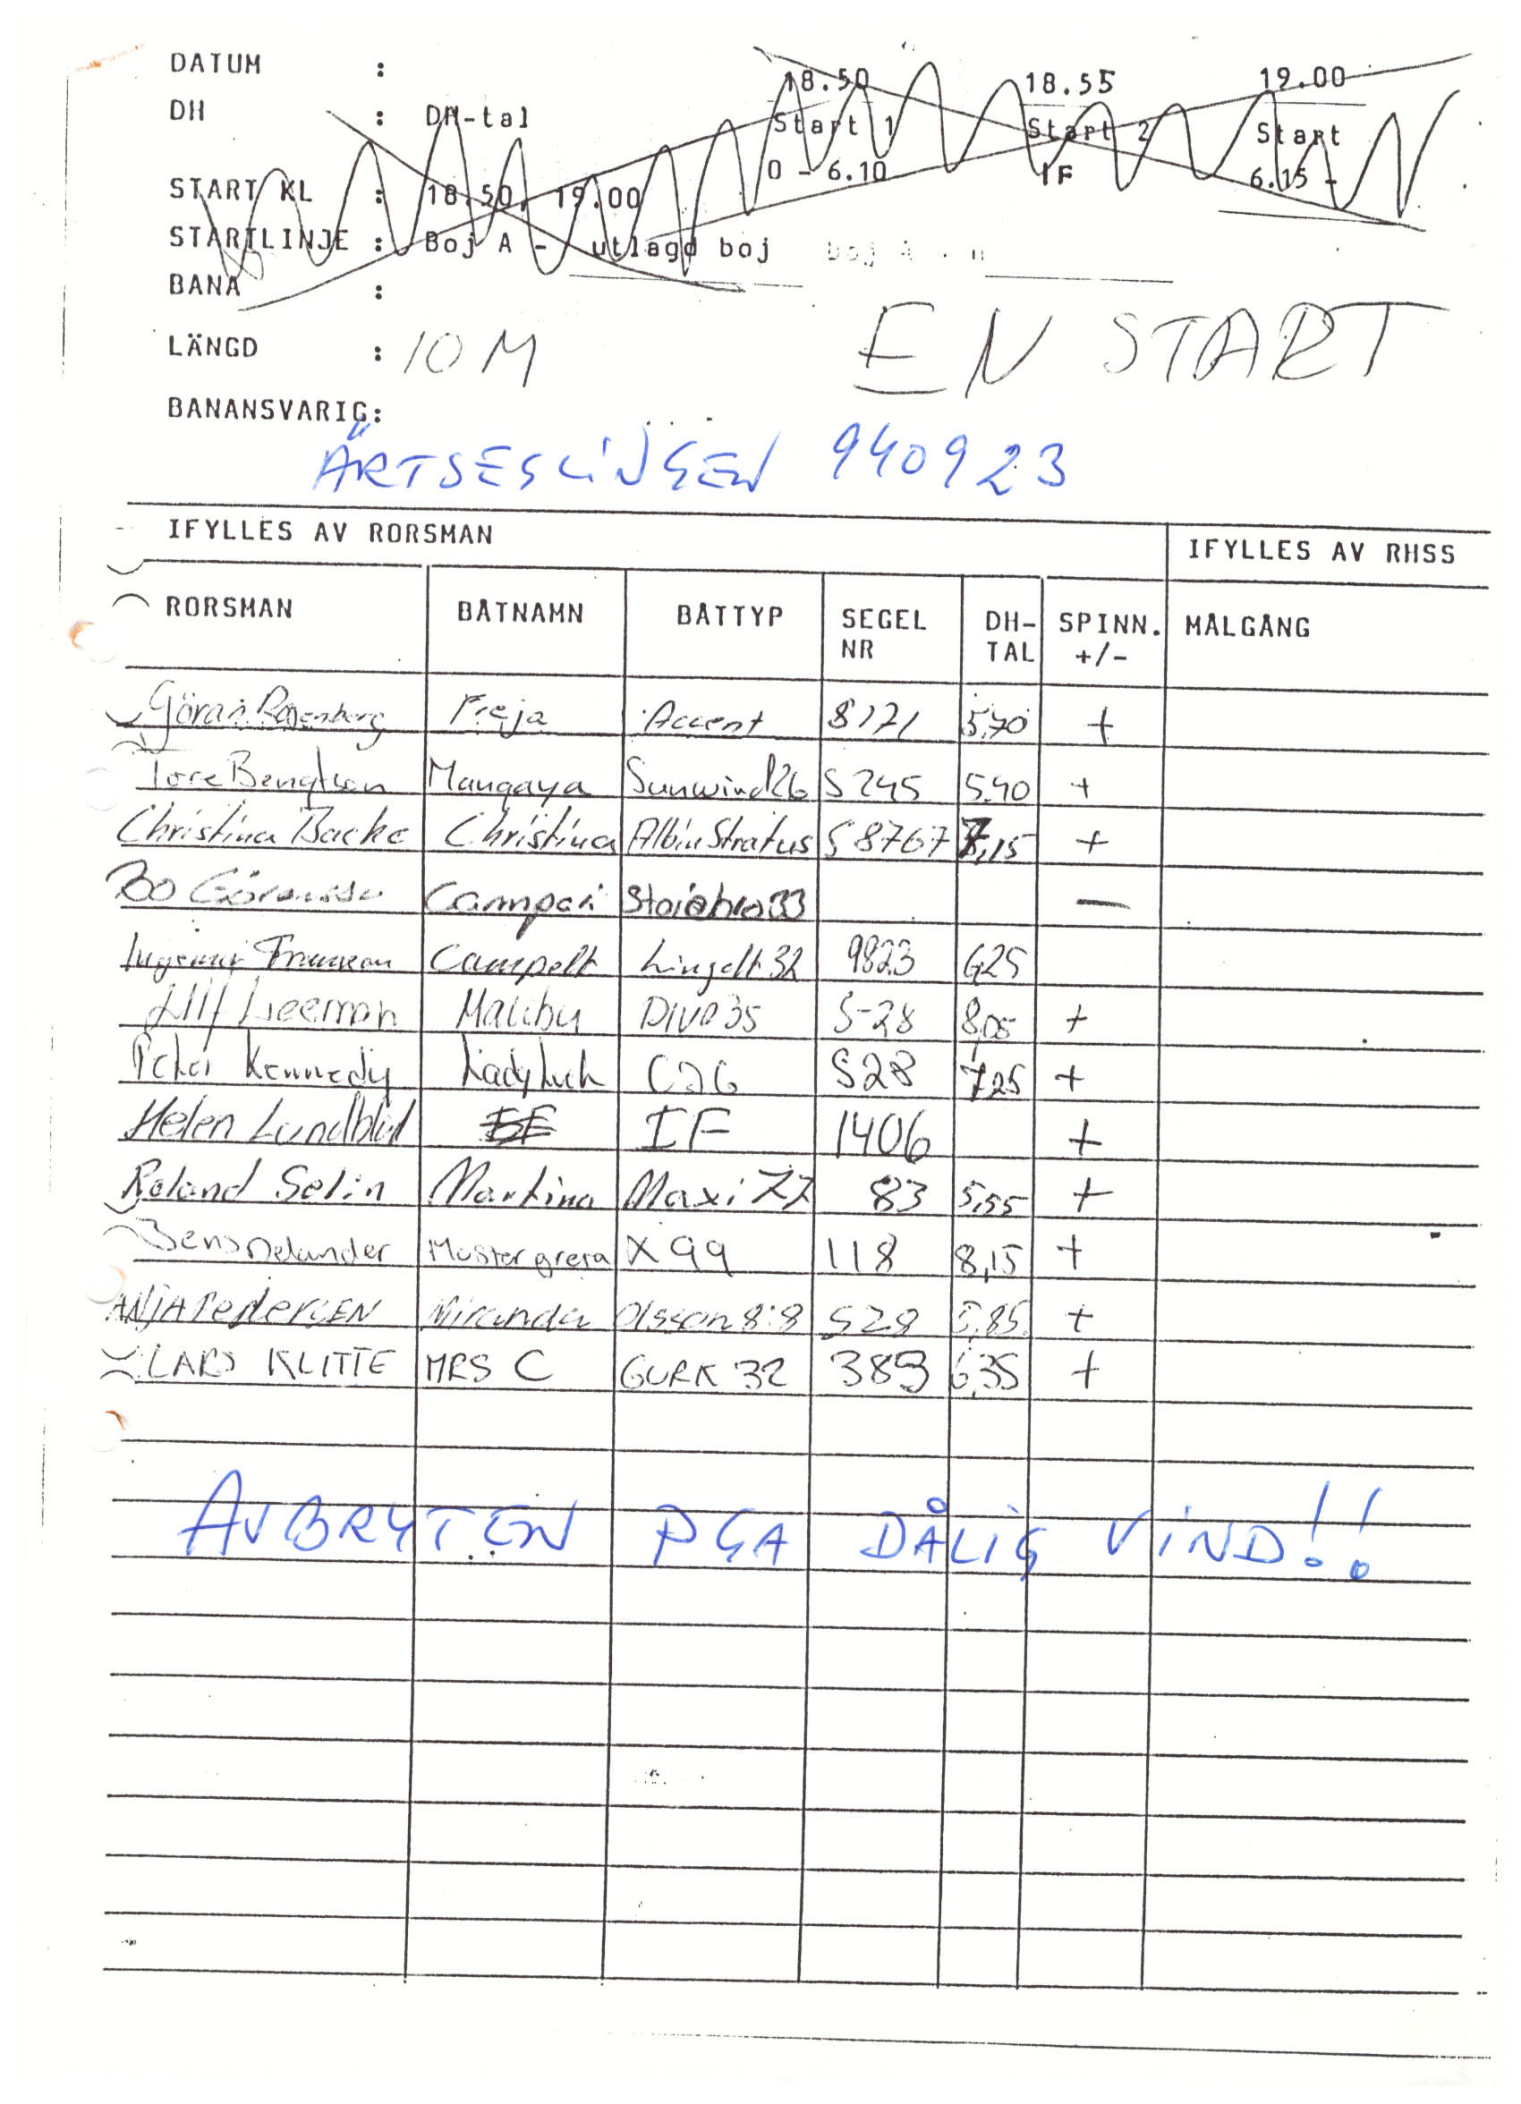 DATUM : 18.50 18.55 19.00
DH : DH-tal Start 1 Start 2 Start
0 - 6.10 IF 6.15 -
START KL : 18.50, 19.00
STARTLINJE : Boj A - utlagd boj boj A - n
BANA :
LÄNGD : 10 M EN START
BANANSVARIG:
ÄRTSESLINGEN 940923
IFYLLES AV RORSMAN IFYLLES AV RHSS
RORSMAN BÅTNAMN BÅTTYP SEGEL NR DH-TAL SPINN. +/- MÅLGÅNG
Göran Rosenberg Freja Accent 8121 5,70 +
Tore Bengtson Maugaya Sunwind26 S 245 5.40 +
Christina Backe Christina Albin Stratus S 8767 7,15 +
Bo Campari 33 -
Ingemar Campelt Lingelt 32 9823 6,25
Ulf Leeman Malibu DIVA 35 S-28 8,05 +
Peter Kennedy LadyLuck C26 S28 7,25 +
Helen Lundblad IF 1406 +
Roland Selin Martina Maxi 77 83 5,55 +
Jens Delander Moster greta X 99 118 8,15 +
ANJA PedersEN Miranda Olsson 8:8 S28 5,85 +
LARS KLITTE MRS C GURK 32 389 6,35 +
AVBRYTEN PGA DÅLIG VIND!!